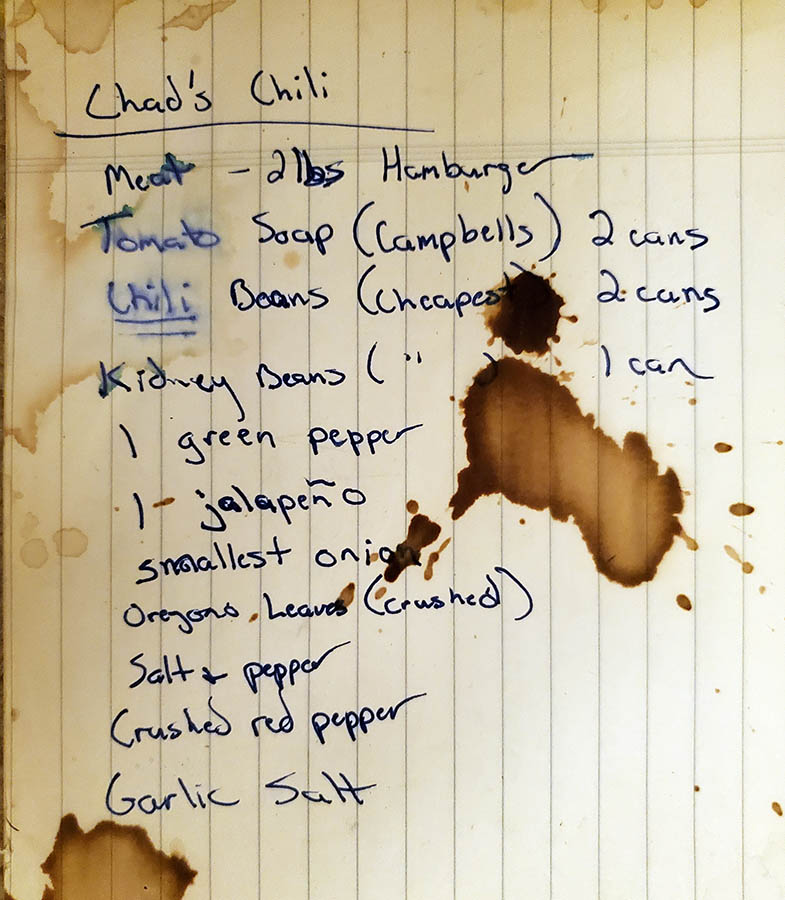 Chad's Chili
Meat - 2 lbs Hamburger
Tomato Soap (Campbells) 2 cans
Chili Beans (cheapest) 2 cans
Kidney Beans ( " ) 1 can
1 green pepper
1 jalapeño
smallest onion
Oregono Leaves (crushed)
Salt & pepper
Crushed red pepper
Garlic Salt